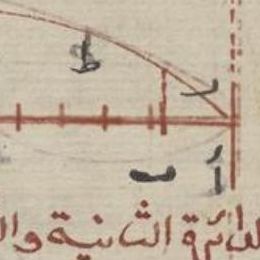 ط
ر
ب
أ
الدائرة الثانية وال